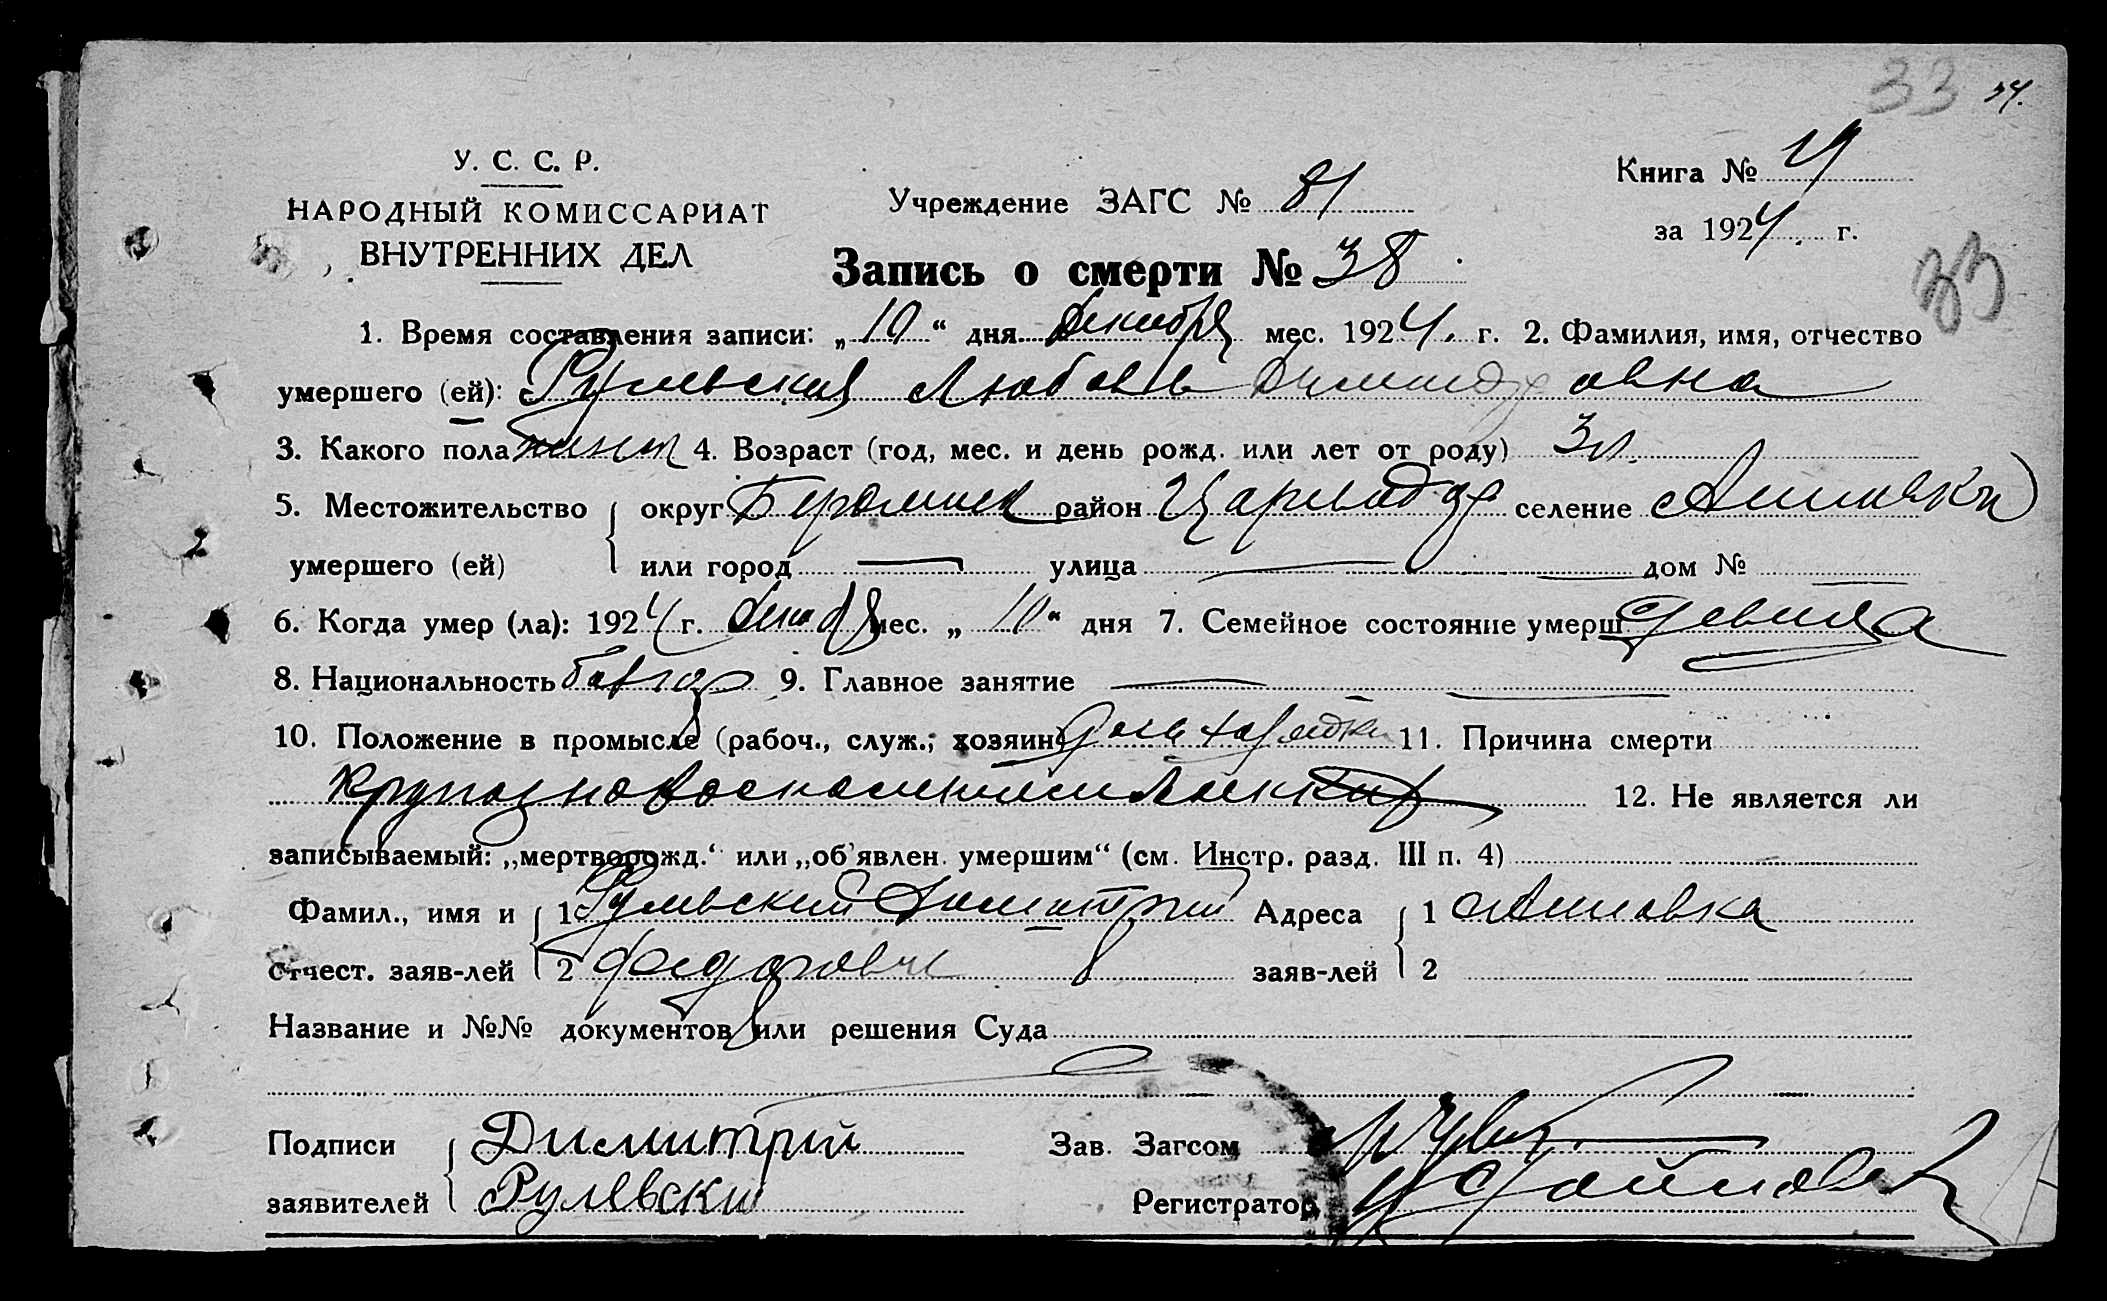 33 34.
У. С. С. Р.
НАРОДНЫЙ КОМИССАРИАТ
ВНУТРЕННИХ ДЕЛ
Учреждение ЗАГС № 81
Книга № 4
за 1924. г.
33
Запись о смерти № 38
1. Время составления записи: „10“ дня Декабря мес. 1924. г. 2. Фамилия, имя, отчество
умершего (ей): Рулевская Любовь Димитровна
3. Какого пола женск 4. Возраст (год, мес. и день рожд. или лет от роду) 3 л.
5. Местожительство округ район селение
умершего (ей) или город — улица — дом № —
6. Когда умер (ла): 1924 г. декабря мес. „10“ дня 7. Семейное состояние умерш девица
8. Национальность болгар 9. Главное занятие —
10. Положение в промысле (рабоч., служ., хозяин) дочь 11. Причина смерти
крупозно воспаление легких 12. Не является ли
записываемый: „мертворожд.“ или „об'явлен умершим“ (см. Инстр. разд. III п. 4)
Фамил., имя и 1 Рулевский Димитрий Адреса 1
Отчест. заяв-лей 2 Федорович заяв-лей 2
Название и №№ документов или решения Суда
Подписи Димитрий Зав. Загсом
заявителей Рулевски Регистратор